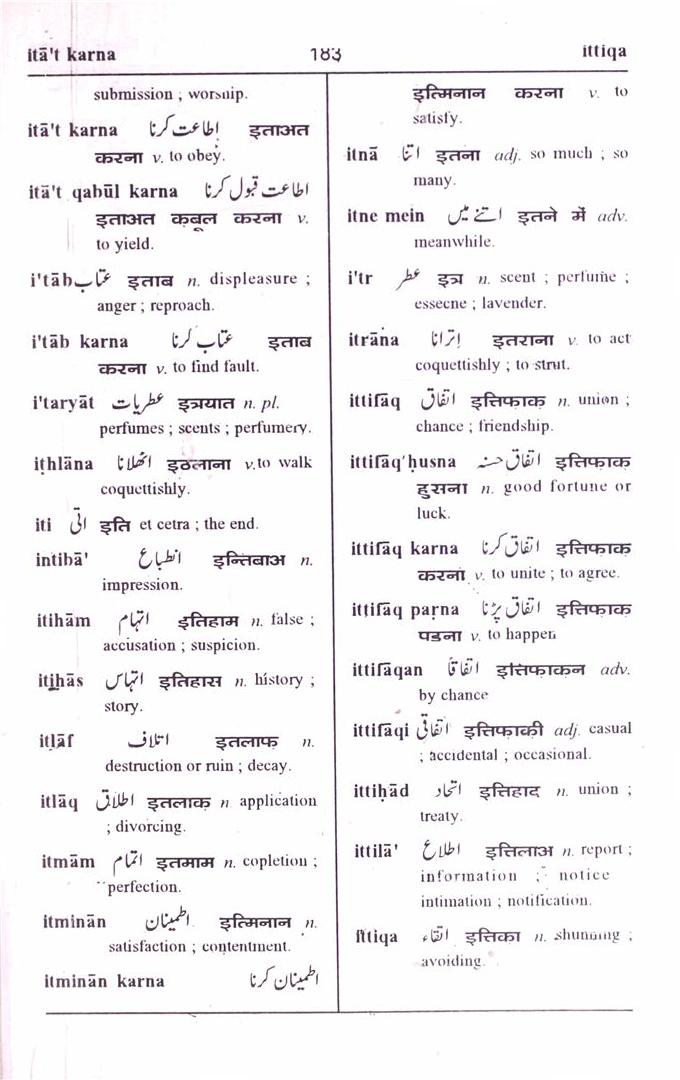 itā't karna 183 ittiqa
submission ; worship.
itā't karna اِطاعت کرنا इताअत
करना v. to obey.
itā't qabūl karna اطاعت قبول کرنا
इताअत क़बूल करना v.
to yield.
i'tāb عتاب इताब n. displeasure ;
anger ; reproach.
i'tāb karna عتاب کرنا इताब
करना v. to find fault.
i'taryāt عطریات इत्रयात n. pl.
perfumes ; scents ; perfumery.
iṭhlāna اٹھلانا इठलाना v.to walk
coquettishly.
iti اتی इति et cetra ; the end.
intibā' انطباع इन्तिबाअ n.
impression.
itihām اتہام इतिहाम n. false ;
accusation ; suspicion.
itihās اتہاس इतिहास n. history ;
story.
itlāf اتلاف इतलाफ़ n.
destruction or ruin ; decay.
itlāq اطلاق इतलाक़ n application
; divorcing.
itmām اتمام इतमाम n. copletion ;
perfection.
itminān اطمینان इत्मिनान n.
satisfaction ; contentment.
itminān karna اطمینان کرنا
इत्मिनान करना v. to
satisfy.
itnā اتنا इतना adj. so much ; so
many.
itne mein اتنے میں इतने में adv.
meanwhile.
i'tr عطر इत्र n. scent ; perfume ;
essecne ; lavender.
itrāna اِترانا इतराना v. to act
coquettishly ; to strut.
ittifāq اتفاق इत्तिफ़ाक़ n. union ;
chance ; friendship.
ittifāq'ḥusna اتفاق حسنہ इत्तिफ़ाक़
हुसना n. good fortune or
luck.
ittifāq karna اتفاق کرنا इत्तिफ़ाक़
करना v. to unite ; to agree.
ittifāq paṛna اتفاق پڑنا इत्तिफ़ाक़
पड़ना v. to happen
ittifāqan اتفاقاً इत्तिफ़ाक़न adv.
by chance
ittifāqi اتفاقی इत्तिफ़ाक़ी adj. casual
; accidental ; occasional.
ittiḥād اتحاد इत्तिहाद n. union ;
treaty.
ittilā' اطلاع इत्तिलाअ n. report ;
information ; notice
intimation ; notification.
ittiqa اتقاء इत्तिक़ा n. shunning ;
avoiding.